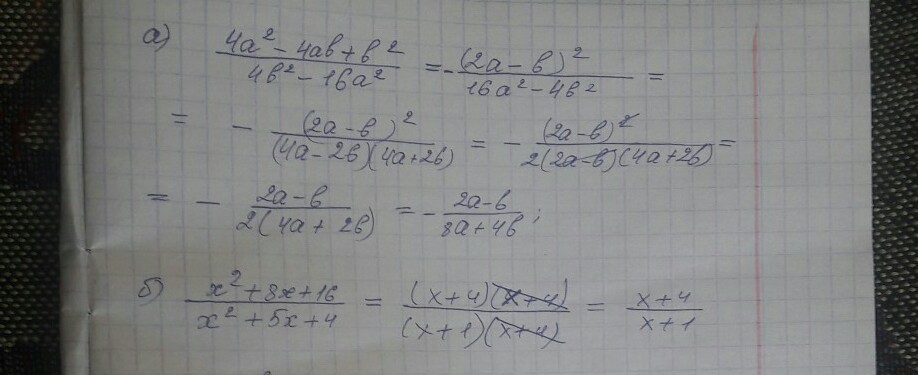 а) (4a² - 4ab + b²)/(4b² - 16a²) = - (2a - b)²/(16a² - 4b²) =
= - (2a - b)²/((4a - 2b)(4a + 2b)) = - (2a - b)²/(2(2a - b)(4a + 2b)) =
= - (2a - b)/(2(4a + 2b)) = - (2a - b)/(8a + 4b);
б) (x² + 8x + 16)/(x² + 5x + 4) = ((x + 4)(x + 4))/((x + 1)(x + 4)) = (x + 4)/(x + 1)